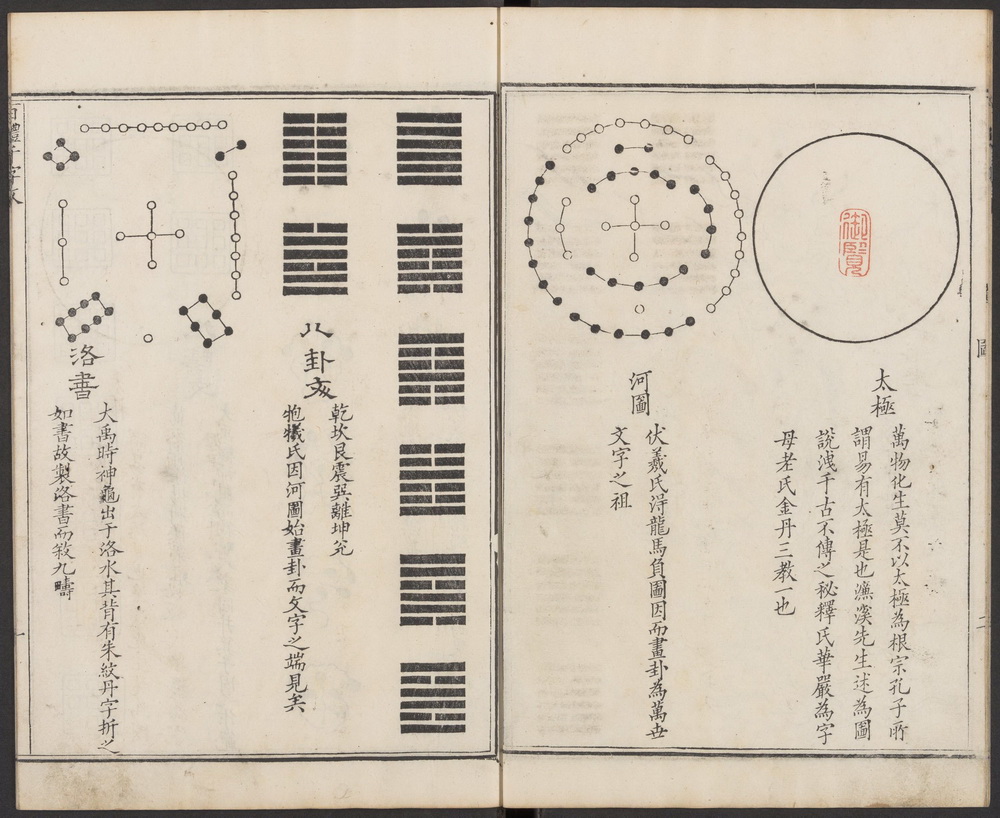 御覽
太極
萬物化生莫不以太極為根宗孔子所
謂易有太極是也濂溪先生述為圖
說洩千古不傳之秘釋氏華嚴為字
母老氏金丹三教一也
圖
二
河圖
伏羲氏浔龍馬負圖因而畫卦為萬世
文字之祖
八卦
乾坎艮震巽離坤兌
犧氏因河圖始畫卦而文字之端見矣
洛書
大禹時神龜出于洛水其背有朱紋丹字折之
如書故製洛書而敘九疇
百體千字文